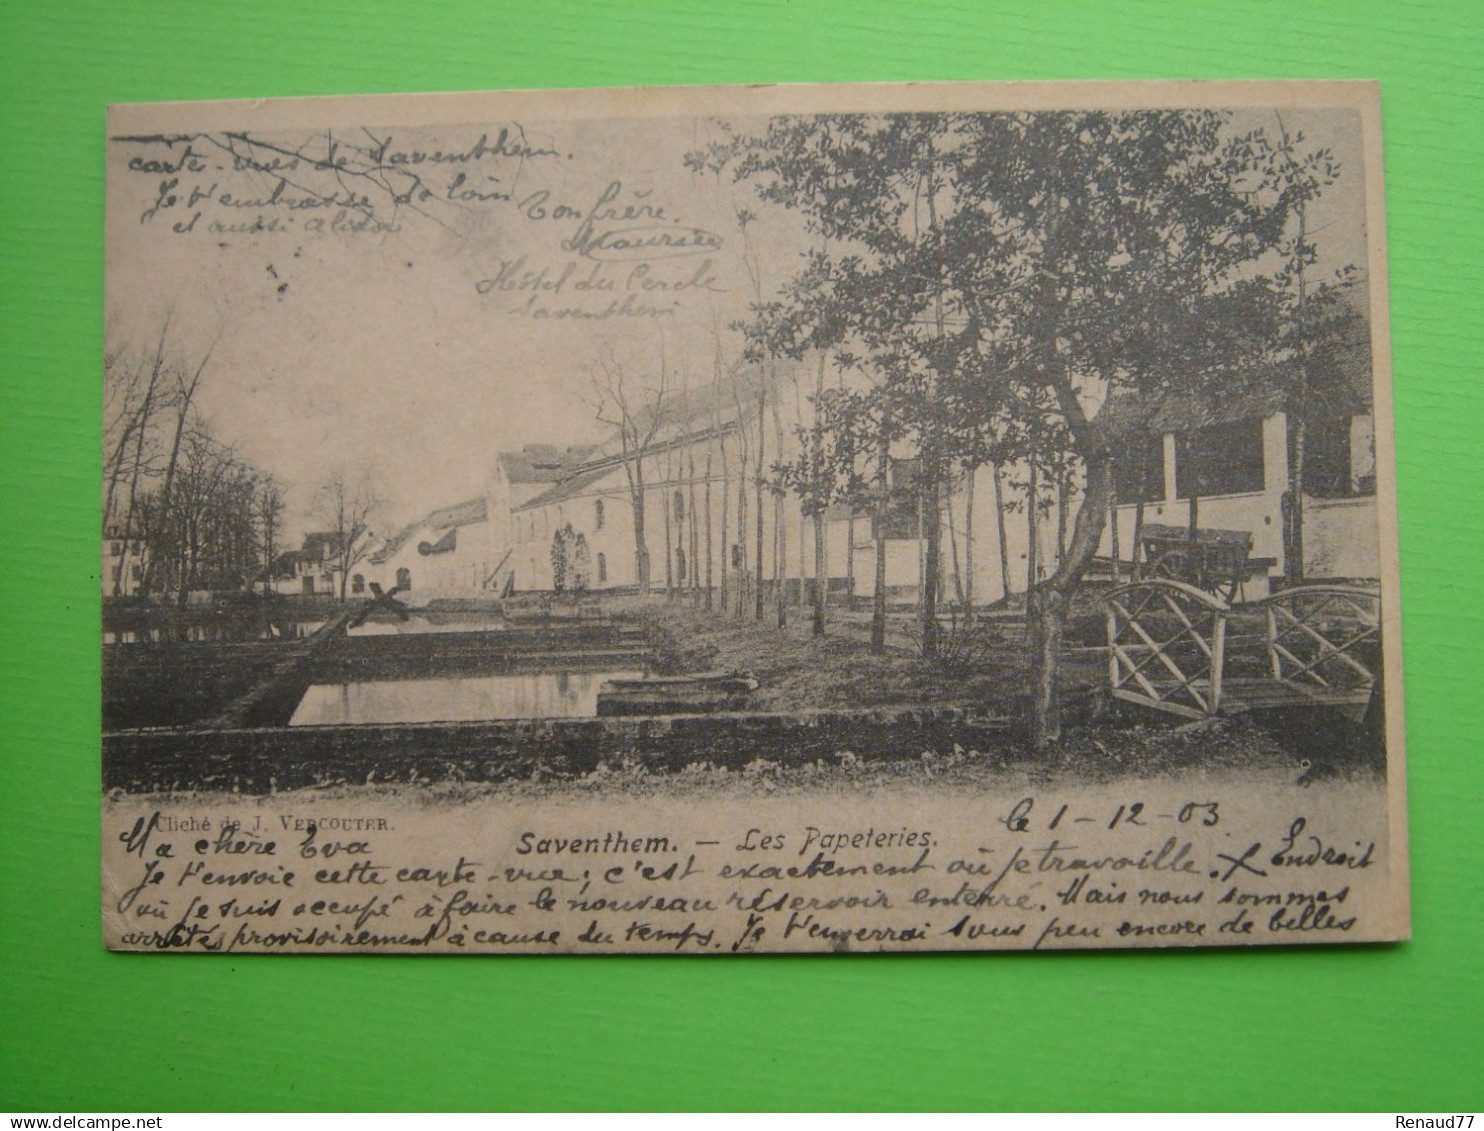 carte-vues de Saventhem.
Je t'embrasse de loin
et aussi Alidor
Ton frère.
Maurice
Hôtel du Cercle
Saventhem
Cliché de J. VERCOUTER.
Saventhem. — Les Papeteries.
le 1-12-03
Ma chère Eva
Je t'envoie cette carte-vue; c'est exactement où je travaille. X Endroit
où je suis occupé à faire le nouveau réservoir enterré. Mais nous sommes
arrêtés provisoirement à cause du temps. Je t'enverrai sous peu encore de belles
Renaud77